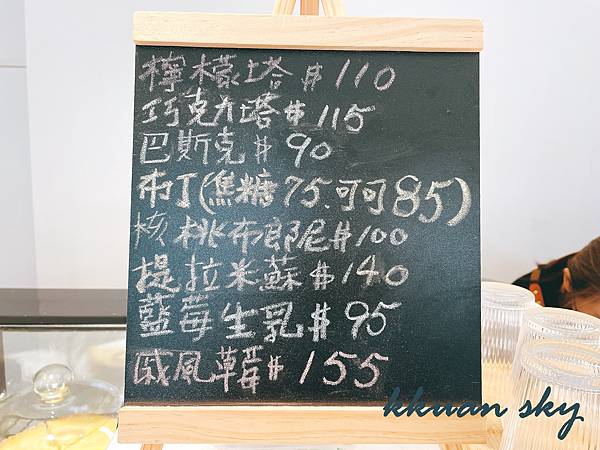 檸檬塔 $110
巧克力塔 $115
巴斯克 $90
布丁(焦糖75.可可85)
核桃布郎尼 $100
提拉米蘇 $140
藍莓生乳 $95
戚風草莓 $155
kkuan sky